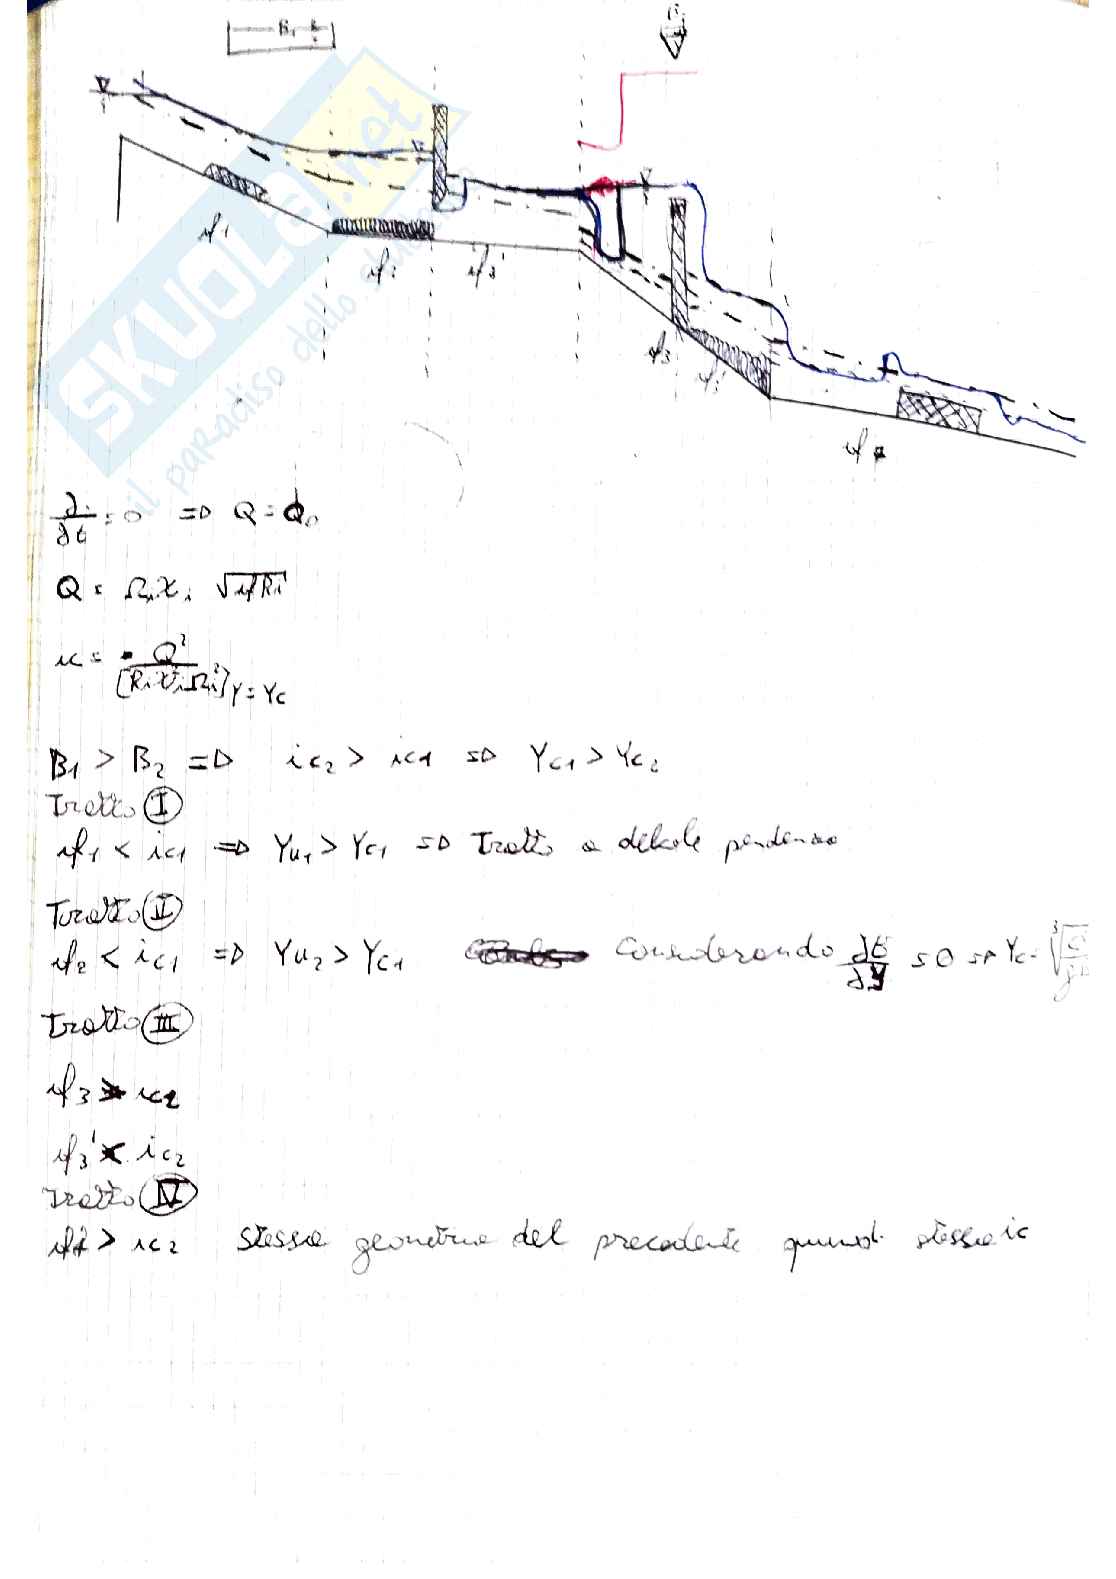 B1
SKUOLA.net
il paradiso dello
if1
if2
if3'
if3
∂·/∂t = 0 => Q = Q0
Q = Ωi χi √(if Ri)
ic = Q²/[Ri χi² Ωi²] Y = Yc
B1 > B2 => ic2 > ic1 => Yc1 > Yc2
Tratto I
if1 < ic1 => Yu1 > Yc1 => Tratto a debole pendenza
Tratto II
if2 < ic1 => Yu2 > Yc1 Considerando ∂E/∂Y = 0 => Yc = ∛
Tratto III
if3 > ic2
if3' < ic2
Tratto IV
if4 > ic2 stessa geometria del precedente quindi stessa ic